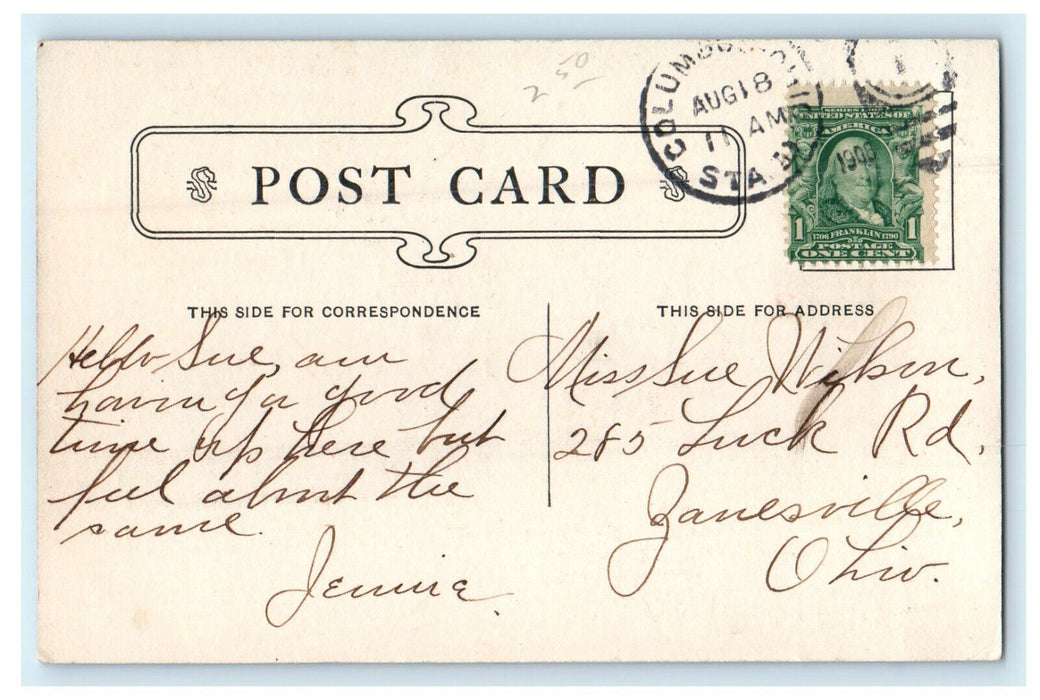 2 50
COLUMBUS, OHIO
AUG 18
11 AM
1908
STA.
SERIES 1902
UNITED STATES OF
AMERICA
1706 FRANKLIN 1790
POSTAGE
1 ONE CENT 1
POST CARD
THIS SIDE FOR CORRESPONDENCE
Hello Sue, am
having a good
time up here but
feel about the
same.
Jennie.
THIS SIDE FOR ADDRESS
Miss Sue Wilson,
285 Luck Rd,
Zanesville,
Ohio.